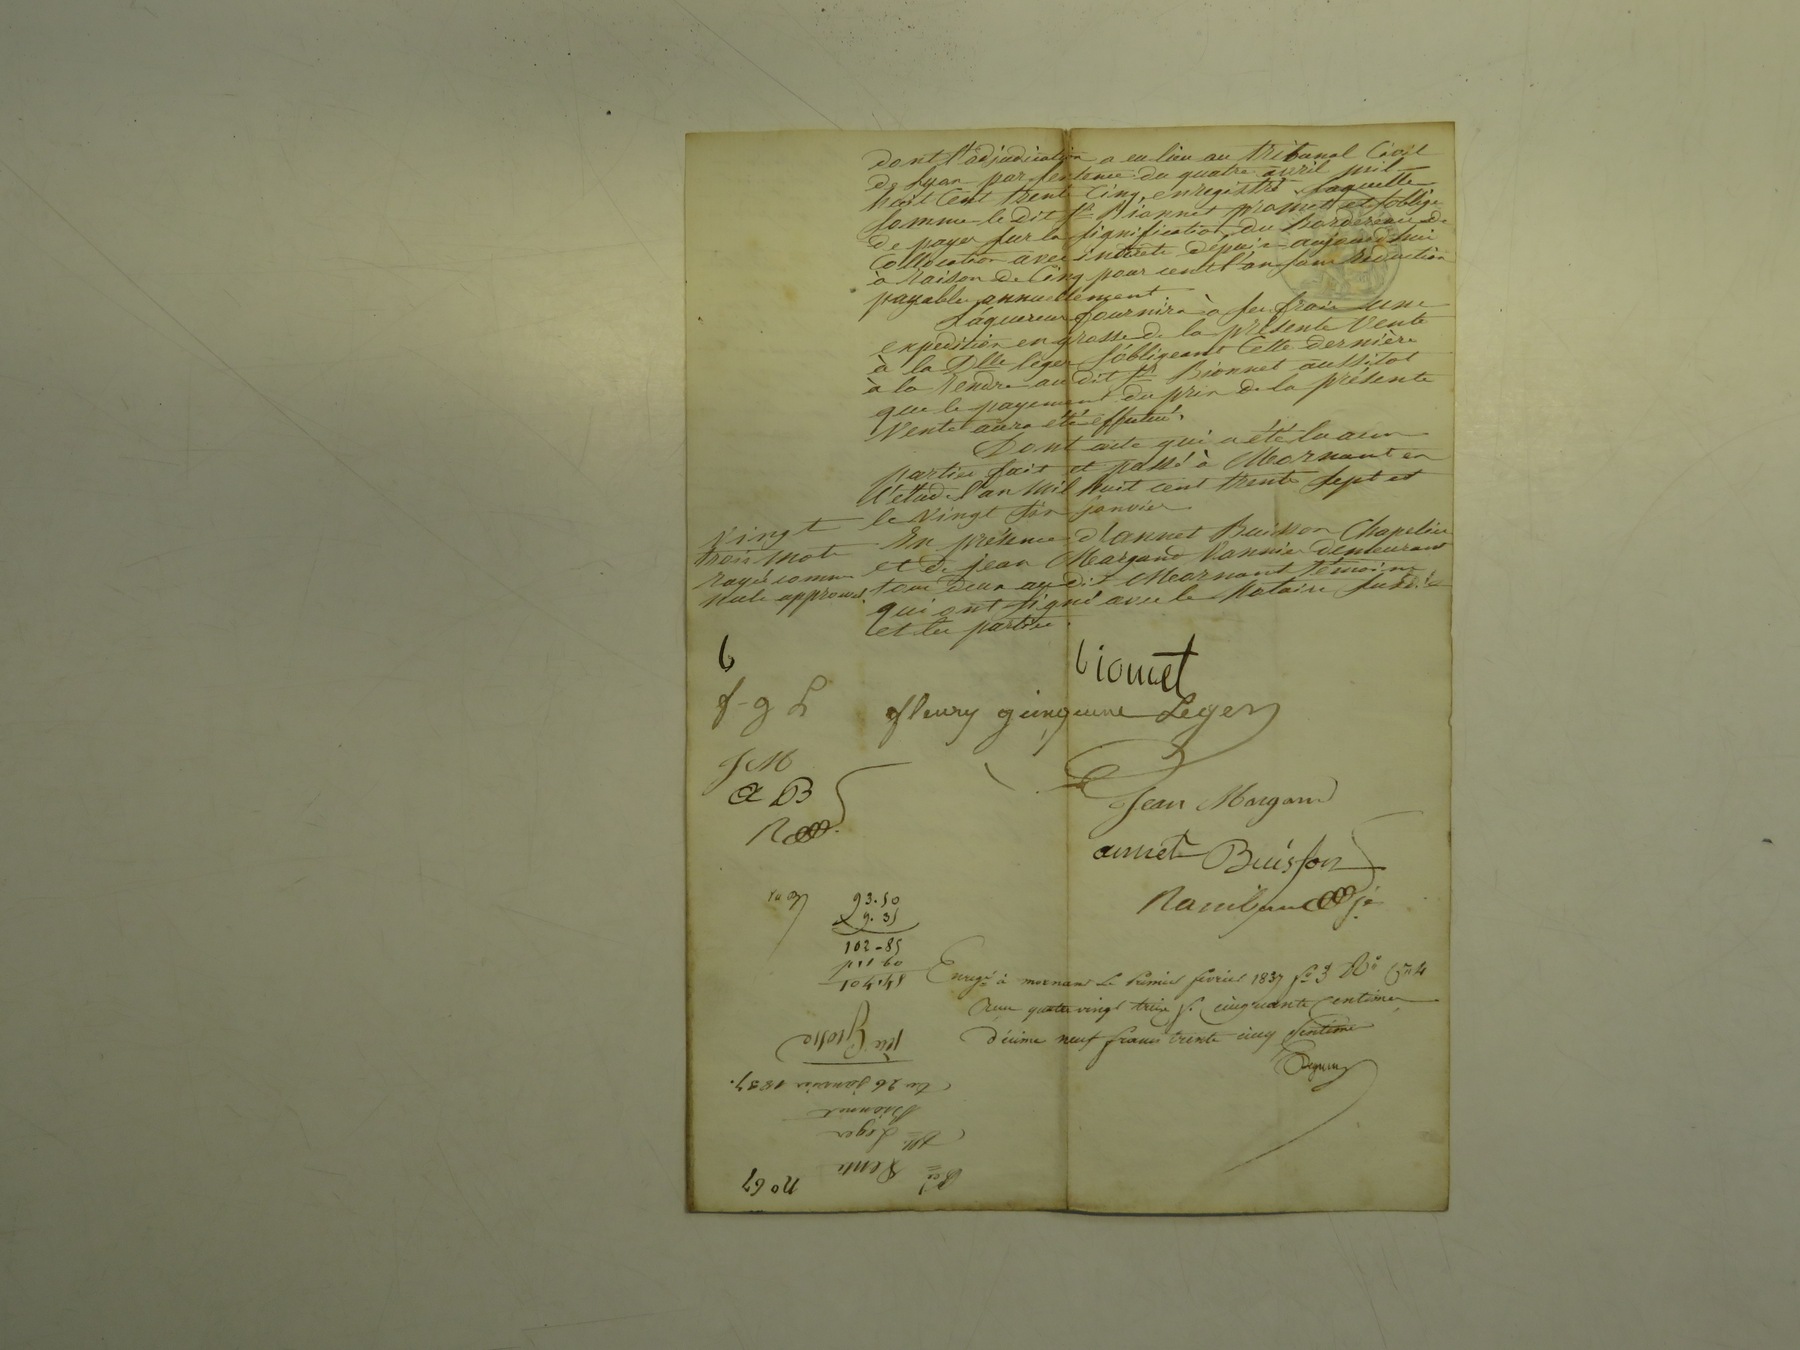 dont l'adjudication a eu lieu au tribunal Civil
de Lyon par sentence du quatre avril mil
huit Cent trente Cinq, enregistré. laquelle
somme le dit Sr Bionnet promet et soblige
de payer sur la signification du bordereau de
Collocation avec intérêts dépuis aujourdhui
à raison de Cinq pour cent l'an sans réduction
payable annuellement.
L'aquereur fournira à ses frais une
expedition en grosse de la présente Vente
à la Dlle leger s'obligeant Cette dernière
à la rendre au dit Sr Bionnet aussitot
que le payement du prix de la présente
Vente aura été effectué.
Dont acte qui a été lu aux
parties fait et passé à Mornant en
l'étude l'an mil huit cent trente sept et
le vingt six janvier
En présence d'annet Buisson Chapelier
et de jean Margand Vannier demeurant
tous deux au dit Mornant témoins
qui ont signé avec le Notaire
et les parties.
vingt
trois mots
rayés comme
nuls approuvés.
b
bionnet
f-g L
fleury Leger
J M
Jean Margand
a B
annet Buisson
R
93.50
9.35
102-85
Enregé à mornant le premier fevrier 1837 fo 3
Reçu quatre vingt treize f. cinquante Centimes
décime neuf francs trente cinq Centimes
Grosse
Du 26 janvier 1837.
Bionnet
Mlle Leger
Vente
no 67